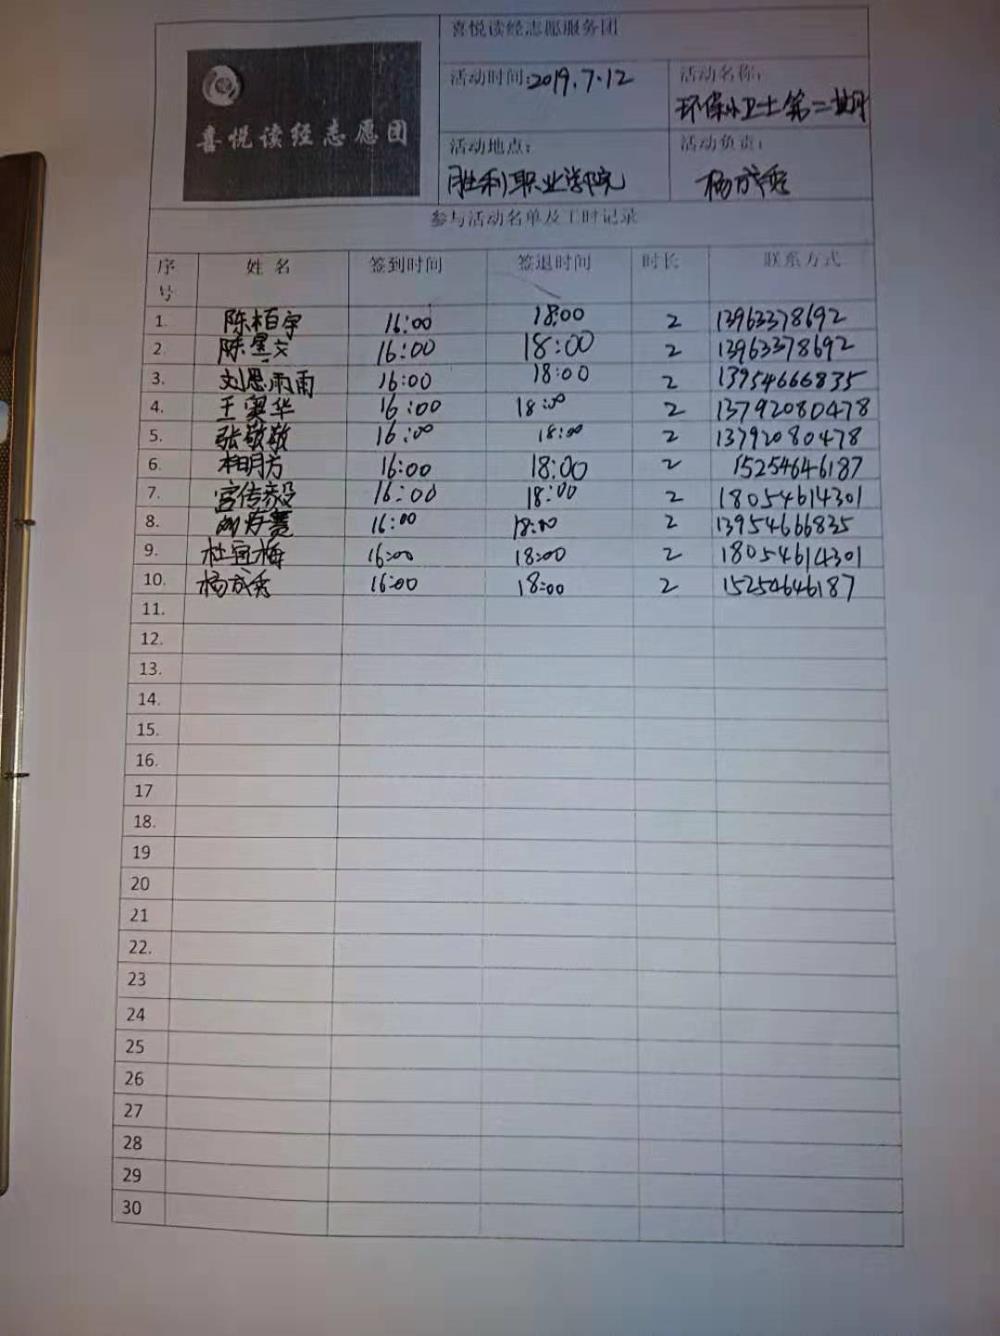 喜悦读经志愿团
喜悦读经志愿服务团
活动时间:2019.7.12
活动名称:
环保小卫士第二期
活动地点:
胜利职业学院
活动负责:
杨成秀
参与活动名单及工时记录
序号 姓名 签到时间 签退时间 时长 联系方式
1. 陈柏宇 16:00 18:00 2 13963378692
2. 陈星文 16:00 18:00 2 13963378692
3. 刘思雨 16:00 18:00 2 13954666835
4. 王寞华 16:00 18:00 2 13792080478
5. 张敬敬 16:00 18:00 2 13792080478
6. 相明方 16:00 18:00 2 15254646187
7. 宫传毅 16:00 18:00 2 18054614301
8. 16:00 18:00 2 13954666835
9. 杜宜梅 16:00 18:00 2 18054614301
10. 杨成秀 16:00 18:00 2 15254646187
11.
12.
13.
14.
15.
16.
17
18.
19
20
21
22.
23
24
25
26
27
28
29
30